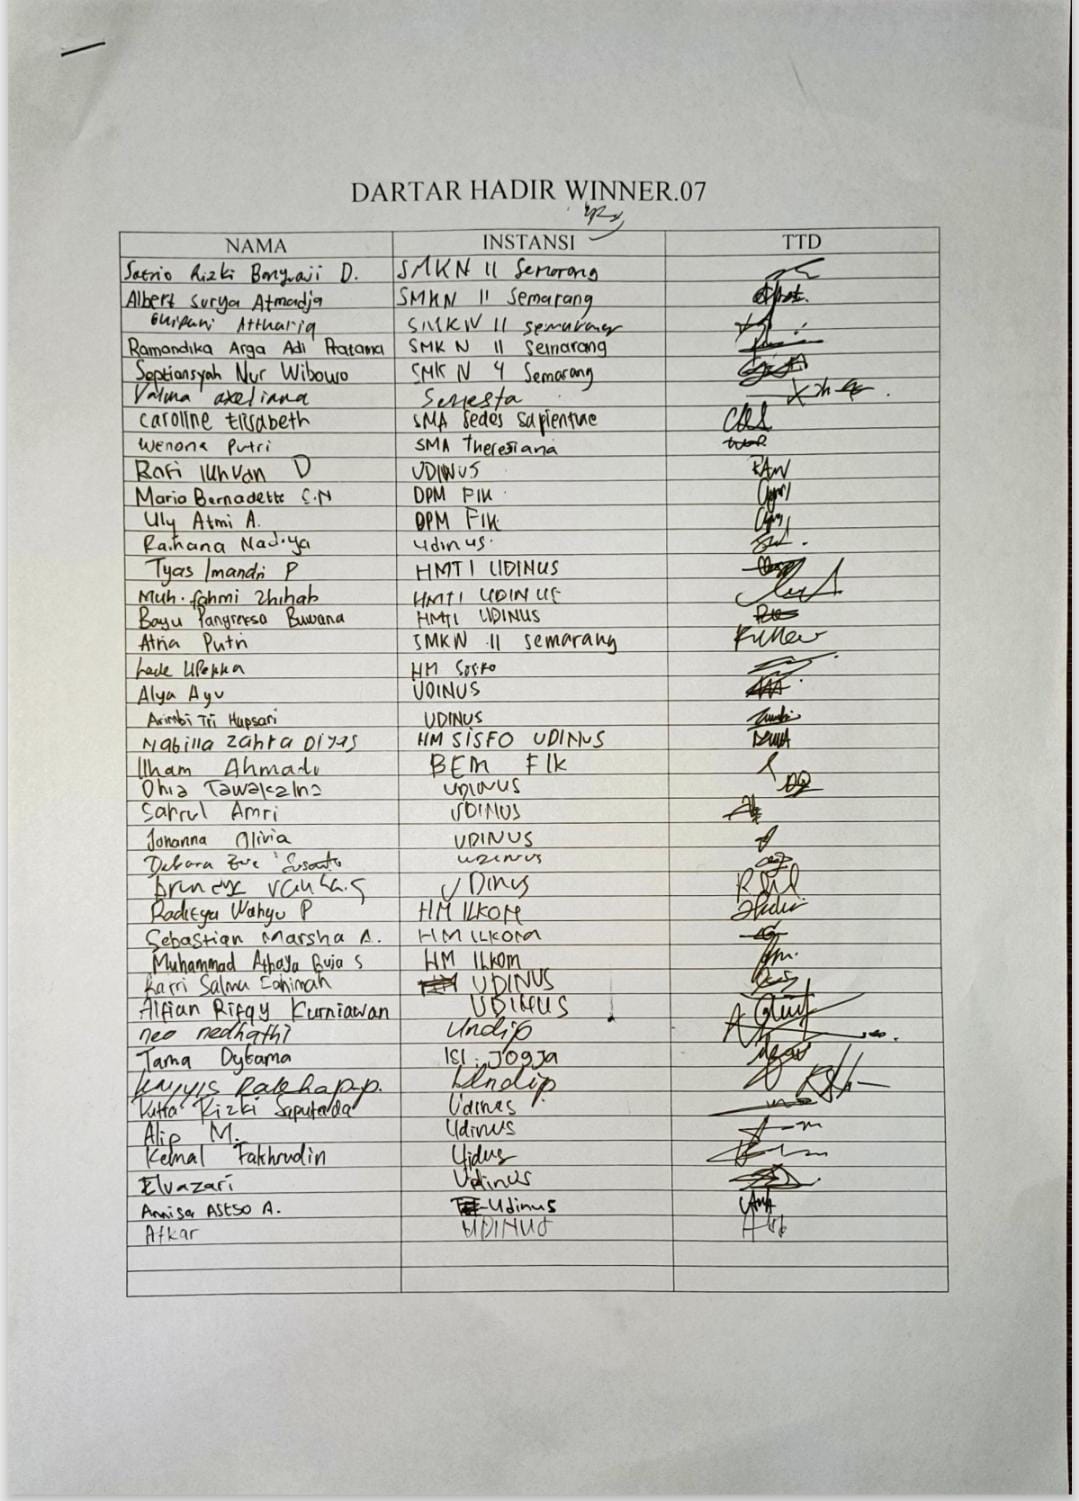 DARTAR HADIR WINNER.07
NAMA INSTANSI TTD
Satrio Rizki D. SMKN 11 Semarang
Albert Surya Atmadja SMKN 11 Semarang
Atthariq SMKN 11 semarang
Ramandika Arga Adi Pratama SMK N 11 Semarang
Septiansyah Nur Wibowo SMK N 4 Semarang
axeliana Semesta
Caroline Elisabeth SMA Sedes Sapientiae
Wenona Putri SMA Theresiana
Rafi D UDINUS RAW
Maria Bernadette C.N DPM FIK
Uly Atmi A. DPM FIK
Raihana Nadiya Udinus.
Tyas Imandri P HMTI UDINUS
Muh. fahmi Zhihab HMTI UDINUS
Bayu Buwana HMTI UDINUS
Atria Putri SMKN 11 Semarang
HM Sisfo
Alya Ayu UDINUS
Arimbi Tri Hapsari UDINUS
Nabilla Zahra Diyas HM SISFO UDINUS
Ilham Ahmadi BEM FIK
UDINUS
Sahrul Amri UDINUS
Johanna Olivia UDINUS
Debora UDINUS
UDinus
Raditya Wahyu P HM ILKOM
Sebastian Marsha A. HM ILKOM
Muhammad S HM Ilkom
Salma UDINUS
Alfian Rifqy Kurniawan UDINUS
neo nedhathi Undip
Tama Dytama ISI. Jogja
Undip
Rizki Saputra Udinus
Alip M. Udinus
Kemal Fakhrudin
Elvazari Udinus
Annisa A. Udinus
Afkar UDINUS